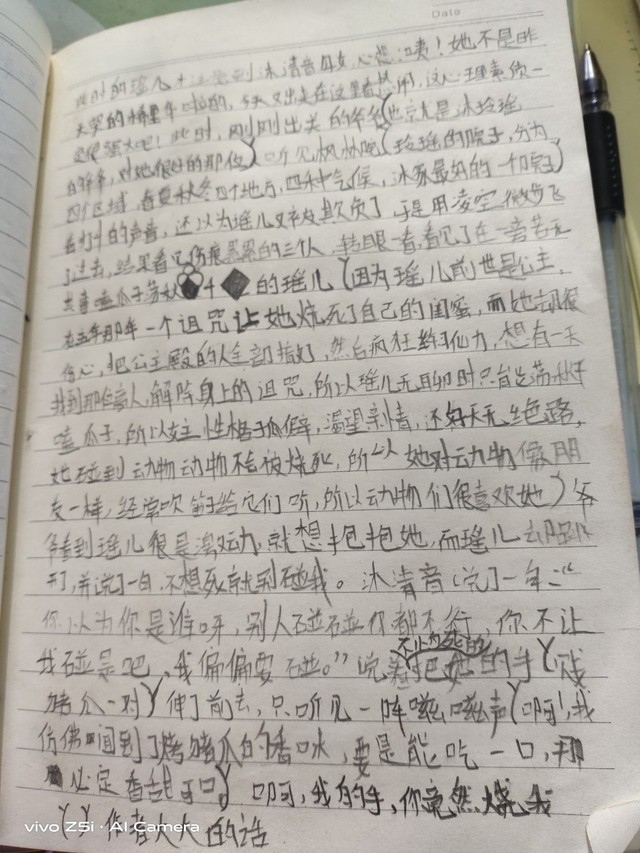 Date
此时的瑶儿十 冰清音母女,心想:咦!她不是昨
天哭的稀里 啦的,今天又出在这里看热闹,这心理素质一
定很强大吧!此时,刚刚出关的爷爷(也就是冰玲瑶
的爷爷,对她很好的那位)听见枫林院(玲瑶的院子,分为
四个区域,春夏秋冬四个地方,四种气候,冰家最好的一个院子)
看打斗的声音,还以为瑶儿又被欺负了,于是用凌空微步飞
了过去,结果看见伤痕累累的三个人,转眼一看,看见了在一旁若无
其事嗑瓜子荡秋千 的瑶儿(因为瑶儿前世是公主,
在五年那年一个诅咒让她烧死了自己的闺蜜,而她却很
伤心,把公主殿的人全部 ,然后疯狂练习仙力,想有一天
找到那位高人,解除身上的诅咒,所以瑶儿无聊时只能荡秋千
嗑瓜子,所以女主性格孤僻,渴望亲情,还好天无绝路,
她碰到动物动物不会被烧死,所以她对动物像朋
友一样,经常吹笛给它们听,所以动物们很喜欢她)爷
爷看到瑶儿很是激动,就想抱抱她,而瑶儿去阻止
了,并说了一句,不想死就别碰我。冰清音说了一句:“
你以为你是谁呀,别人碰碰你都不行,你不让
我碰是吧,我偏偏要碰。”说着把她的手(贱
不以为死的
猪 一对)伸了前去,只听见一阵嗞嗞声(啊!,我
仿佛闻到了烤猪爪的香味,要是能吃一口,那
必定香甜可口)啊,我的手,你竟然烧我
( )作者大大的话
vivo Z5i · AI Camera